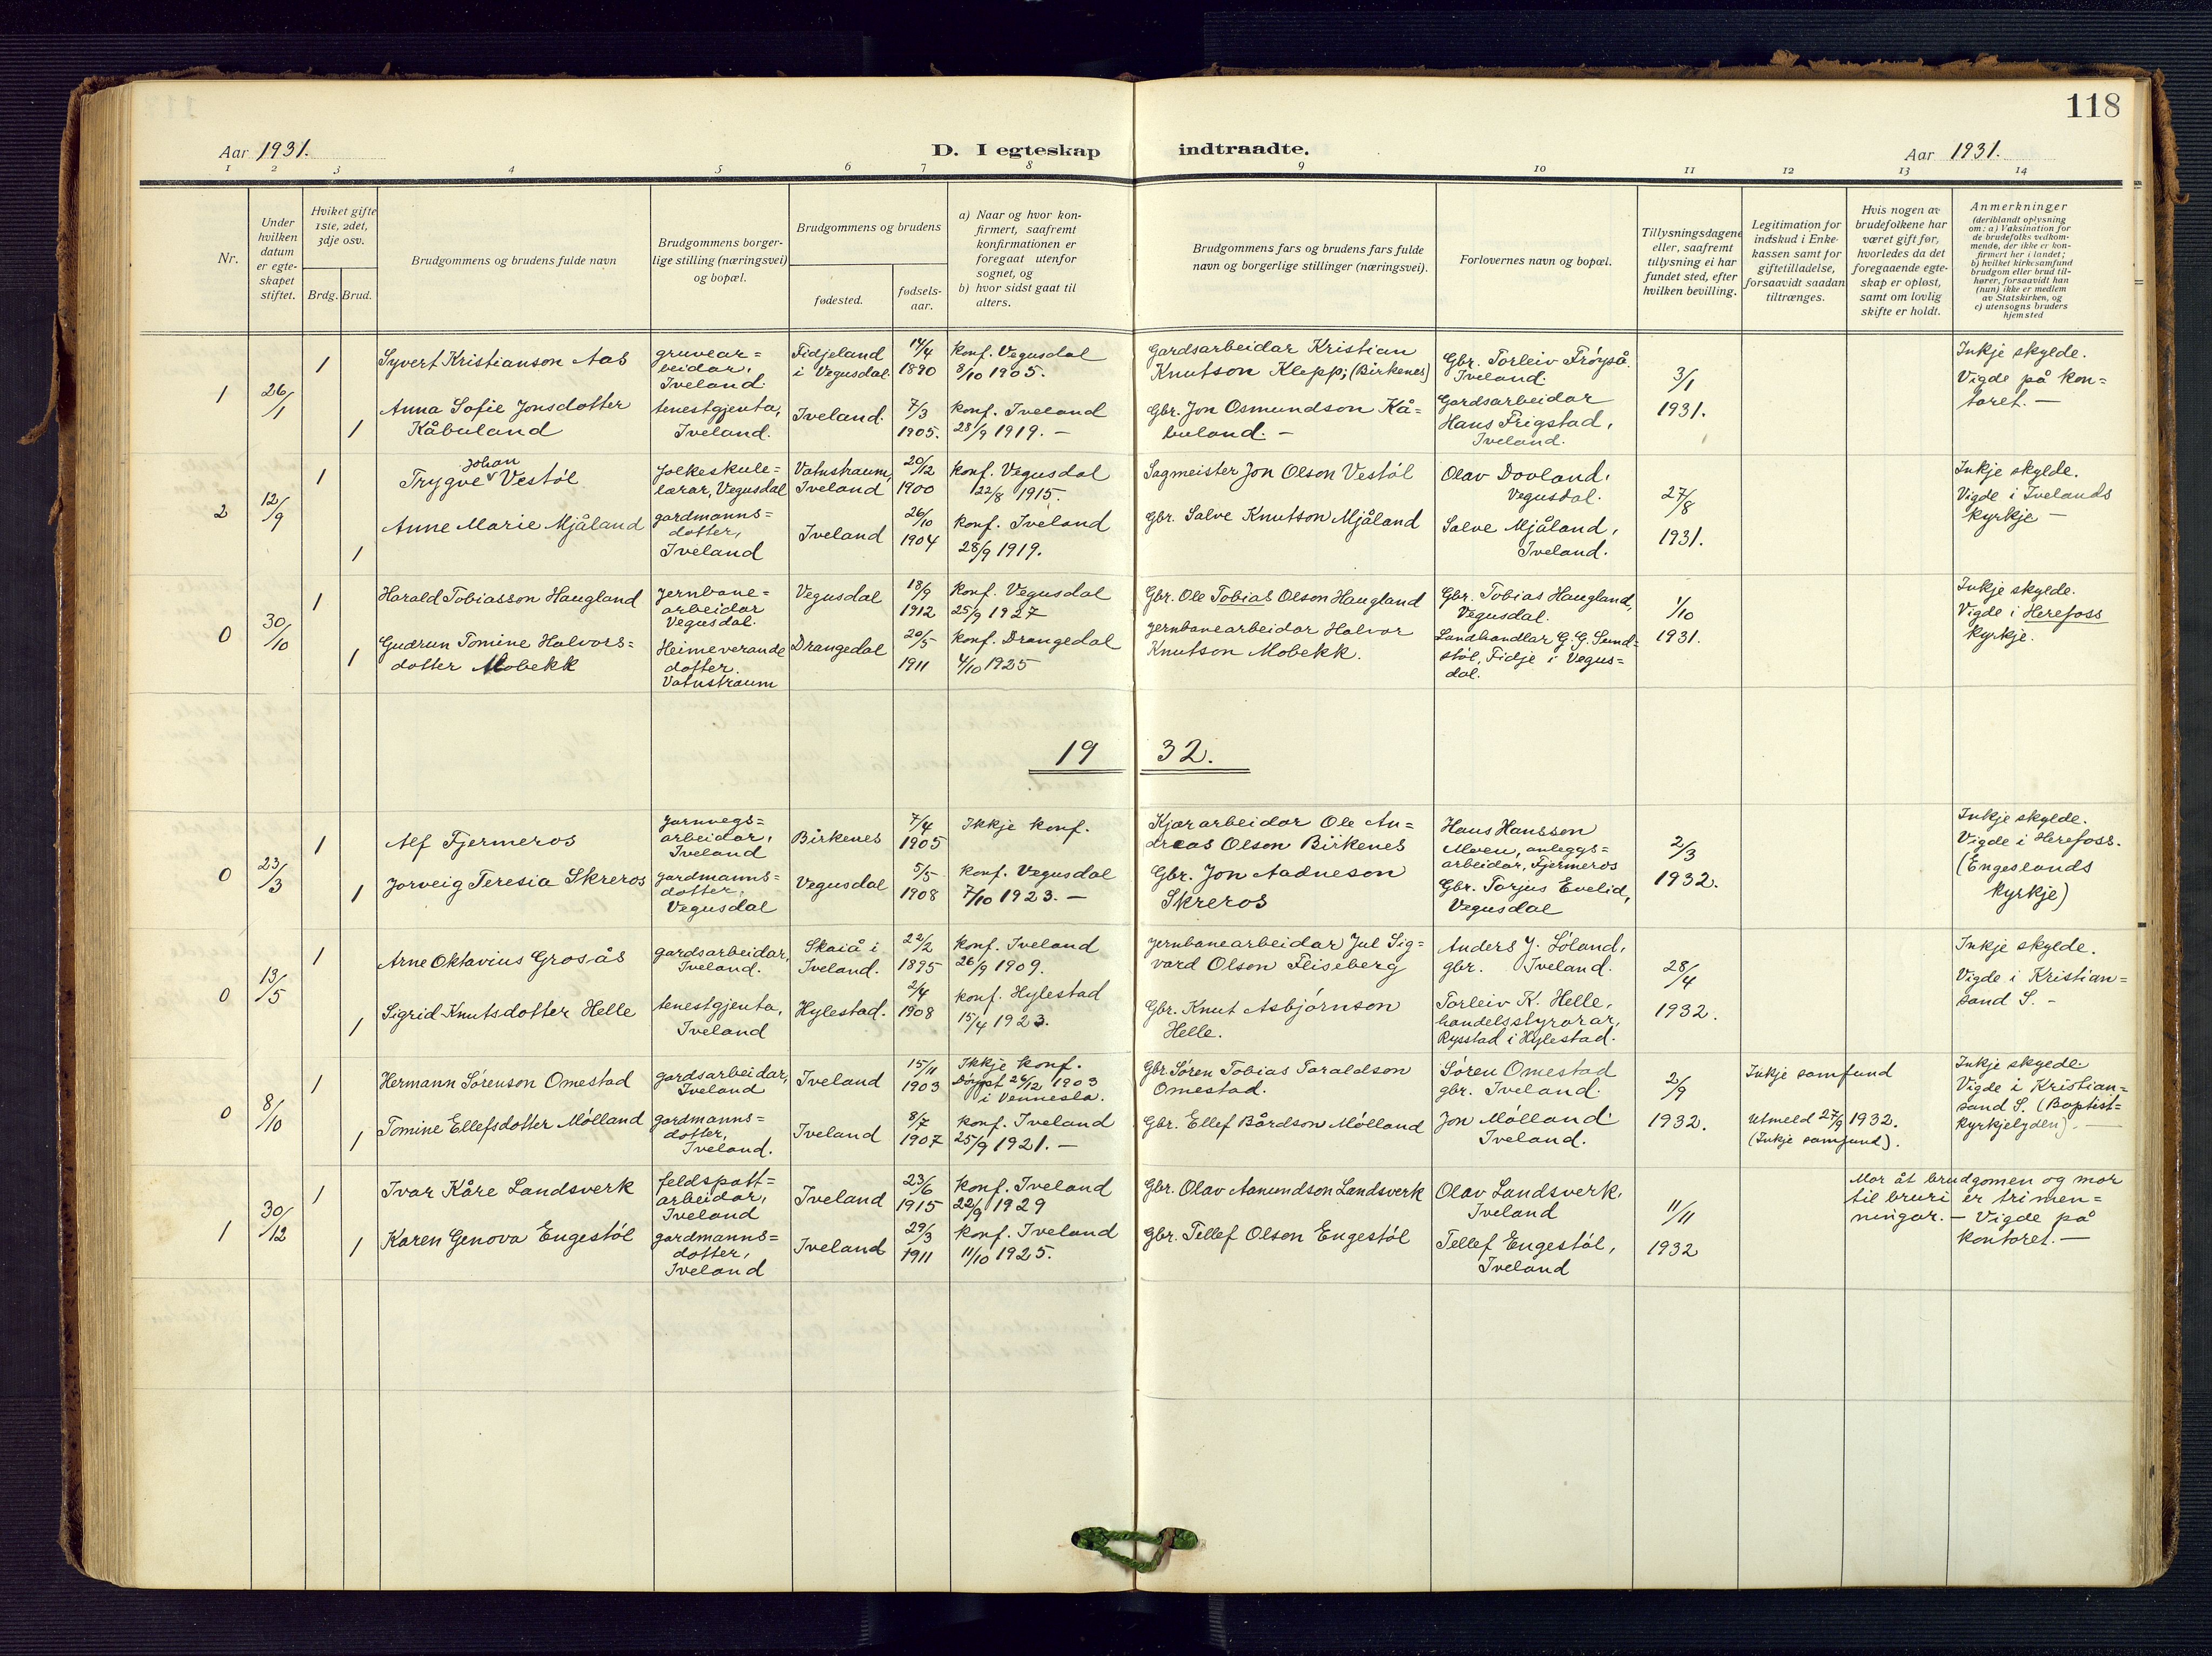 118
Aar 1931.
D. I egteskap indtraadte.
Aar 1931.
1 2 3 4 5 6 7 8 9 10 11 12 13 14
Nr.
Under hvilken datum er egteskapet stiftet.
Hviket gifte 1ste, 2det, 3dje osv.
Brdg. Brud.
Brudgommens og brudens fulde navn
Brudgommens borgerlige stilling (næringsvei) og bopæl.
Brudgommens og brudens
fødested.
fødselsaar.
a) Naar og hvor konfirmert, saafremt konfirmationen er foregaat utenfor sognet, og
b) hvor sidst gaat til alters.
Brudgommens fars og brudens fars fulde navn og borgerlige stillinger (næringsvei).
Forlovernes navn og bopæl.
Tillysningsdagene eller, saafremt tillysning ei har fundet sted, efter hvilken bevilling.
Legitimation for indskud i Enkekassen samt for giftetilladelse, forsaavidt saadan tiltrænges.
Hvis nogen av brudefolkene har været gift før, hvorledes da det foregaaende egteskap er opløst, samt om lovlig skifte er holdt.
Anmerkninger
(deriblandt oplysning om: a) Vaksination for de brudefolks vedkommende, der ikke er konfirmert her i landet; b) hvilket kirkesamfund brudgom eller brud tilhører, forsaavidt han (hun) ikke er medlem av Statskirken, og c) utensogns bruders hjemsted
1 26/1
1 Syvert Kristianson Aas
gruvear=
beidar,
Iveland
Fidjeland
i Vegusdal
14/4
1890
Konf. Vegusdal
8/10 1905.
Gardsarbeidar Kristian
Knutson Klepp; (Birkenes)
Gbr. Torleiv Frøyså.
Iveland.
3/1
1931.
Inkje skylde.
Vigde på kon=
toret. —
1 Anna Sofie Jonsdotter
Kåbuland
tenestgjenta,
Iveland.
Iveland.
7/3
1905.
Konf. Iveland
28/9 1919. —
Gbr. Jon Osmundson Kå=
buland. —
Gardsarbeidar
Hans Frigstad,
Iveland.
2 12/9
1 Trygve Johan Vestøl
folkeskule=
lærar, Vegusdal
Vatnstraum,
Iveland
20/12
1900
Konf. Vegusdal
22/8 1915.
Sagmeister Jon Olson Vestøl
Olav Dovland,
Vegusdal.
27/8
1931.
Inkje skylde.
Vigde i Ivelands
kyrkje —
1 Anne Marie Mjåland
gardmanns=
dotter,
Iveland
Iveland
26/10
1904
Konf. Iveland
28/9 1919.
Gbr. Salve Knutson Mjåland
Salve Mjåland,
Iveland.
0 30/10
1 Harald Tobiasson Haugland
Jernbane=
arbeidar
Vegusdal.
Vegusdal
18/9
1912
Konf. Vegusdal
25/9 1927
Gbr. Ole Tobias Olson Haugland
Gbr. Tobias Haugland,
Vegusdal.
1/10
1931.
Inkje skylde.
Vigde i Herefoss
kyrkje.
1 Gudrun Tomine Halvors=
dotter Mobekk
Heimeverande
dotter.
Vatnstraum
Drangedal
20/5
1911
Konf. Drangedal
4/10 1925
Jernbanearbeidar Halvor
Knutson Mobekk.
Landhandlar G. G. Sund=
støl, Fidje i Vegus=
dal.
1932.
0 23/3
1 Alf Tjermeros
Jarnvegs=
arbeidar,
Iveland
Birkenes
7/4
1905
Ikkje konf.
Kjørarbeidar Ole An=
dreas Olson Birkenes
Hans Hansson
Moen, anleggs=
arbeidar, Fjermeros
2/3
1932.
Inkje skylde.
Vigde i Herefoss.
(Engeslands
kyrkje)
1 Jorveig Teresia Skreros
gardmanns=
dotter,
Vegusdal
Vegusdal
5/5
1908
Konf. Vegusdal
7/10 1923. —
Gbr. Jon Aadneson
Skreros
Gbr. Torjus Evelid,
Vegusdal
0 13/5
1 Arne Oktavius Grosås
gardsarbeidar,
Iveland.
Skaiå i
Iveland.
22/2
1895
Konf. Iveland
26/9 1909.
Jernbanearbeidar Jul Sig=
vard Olson Fliseberg
Anders J. Løland,
gbr. Iveland.
28/4
1932.
Inkje skylde.
Vigde i Kristian=
sand S. —
1 Sigrid Knutsdotter Helle
tenestgjenta,
Iveland
Hylestad.
2/4
1908
Konf. Hylestad
15/4 1923.
Gbr. Knut Asbjørnson
Helle.
Torleiv K. Helle,
handelsstyrarar,
Rysstad i Hylestad.
0 8/10
1 Hermann Sørenson Omestad
gardsarbeidar,
Iveland
Iveland
15/11
1903
Ikkje konf.
Døypt 26/12 1903
i Vennesla.
Gbr. Søren Tobias Taraldson
Omestad.
Søren Omestad
gbr. Iveland.
2/9
1932.
Inkje samfund
Inkje skylde
Vigde i Kristian=
sand S. (Baptist=
kyrkjelyden). —
1 Tomine Ellefsdotter Mølland
gardmanns=
dotter,
Iveland.
Iveland
8/7
1907
Konf. Iveland
25/9 1921. —
Gbr. Ellef Bårdson Mølland
Jon Mølland
Iveland.
Utmeld 27/9 1932.
(Inkje samfund).
1 30/12
1 Ivar Kåre Landsverk
feldspatt=
arbeidar,
Iveland
Iveland
23/6
1915
Konf. Iveland
22/9 1929
Gbr. Olav Aanundson Landsverk
Olav Landsverk,
Iveland
11/11
1932
Mor åt brudgomen og mor
til bruri er trimen=
ningar. — Vigde på
kontoret. —
1 Karen Genova Engestøl
gardmanns=
dotter,
Iveland
Iveland
29/3
1911
Konf. Iveland
11/10 1925.
Gbr. Tellef Olson Engestøl
Tellef Engestøl,
Iveland